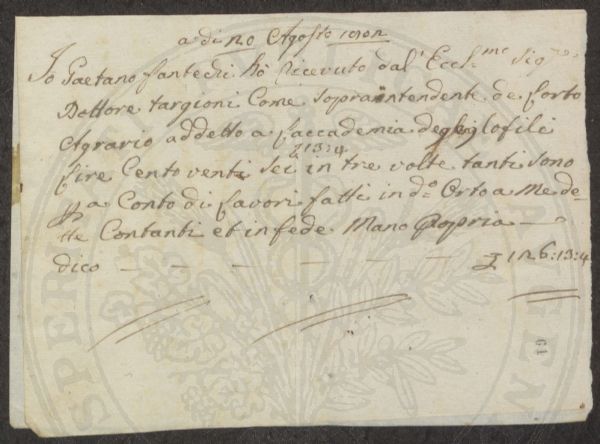 a di 20 Agosto 1802
Io Gaetano fantechi hò ricevuto dal' Eccl.mo Sig.re
Dottore targioni Come Sopraintendente de forto
Agrario addetto a faccademia degeglofili
£ 13:4
fire Cento venti Sei in tre volte tanti sono
p a Conto di favori fatti in d.o Orto a Me de-
tte Contanti et in fede Mano Propria
dico £ 126:13:4
19
SPER
GEN